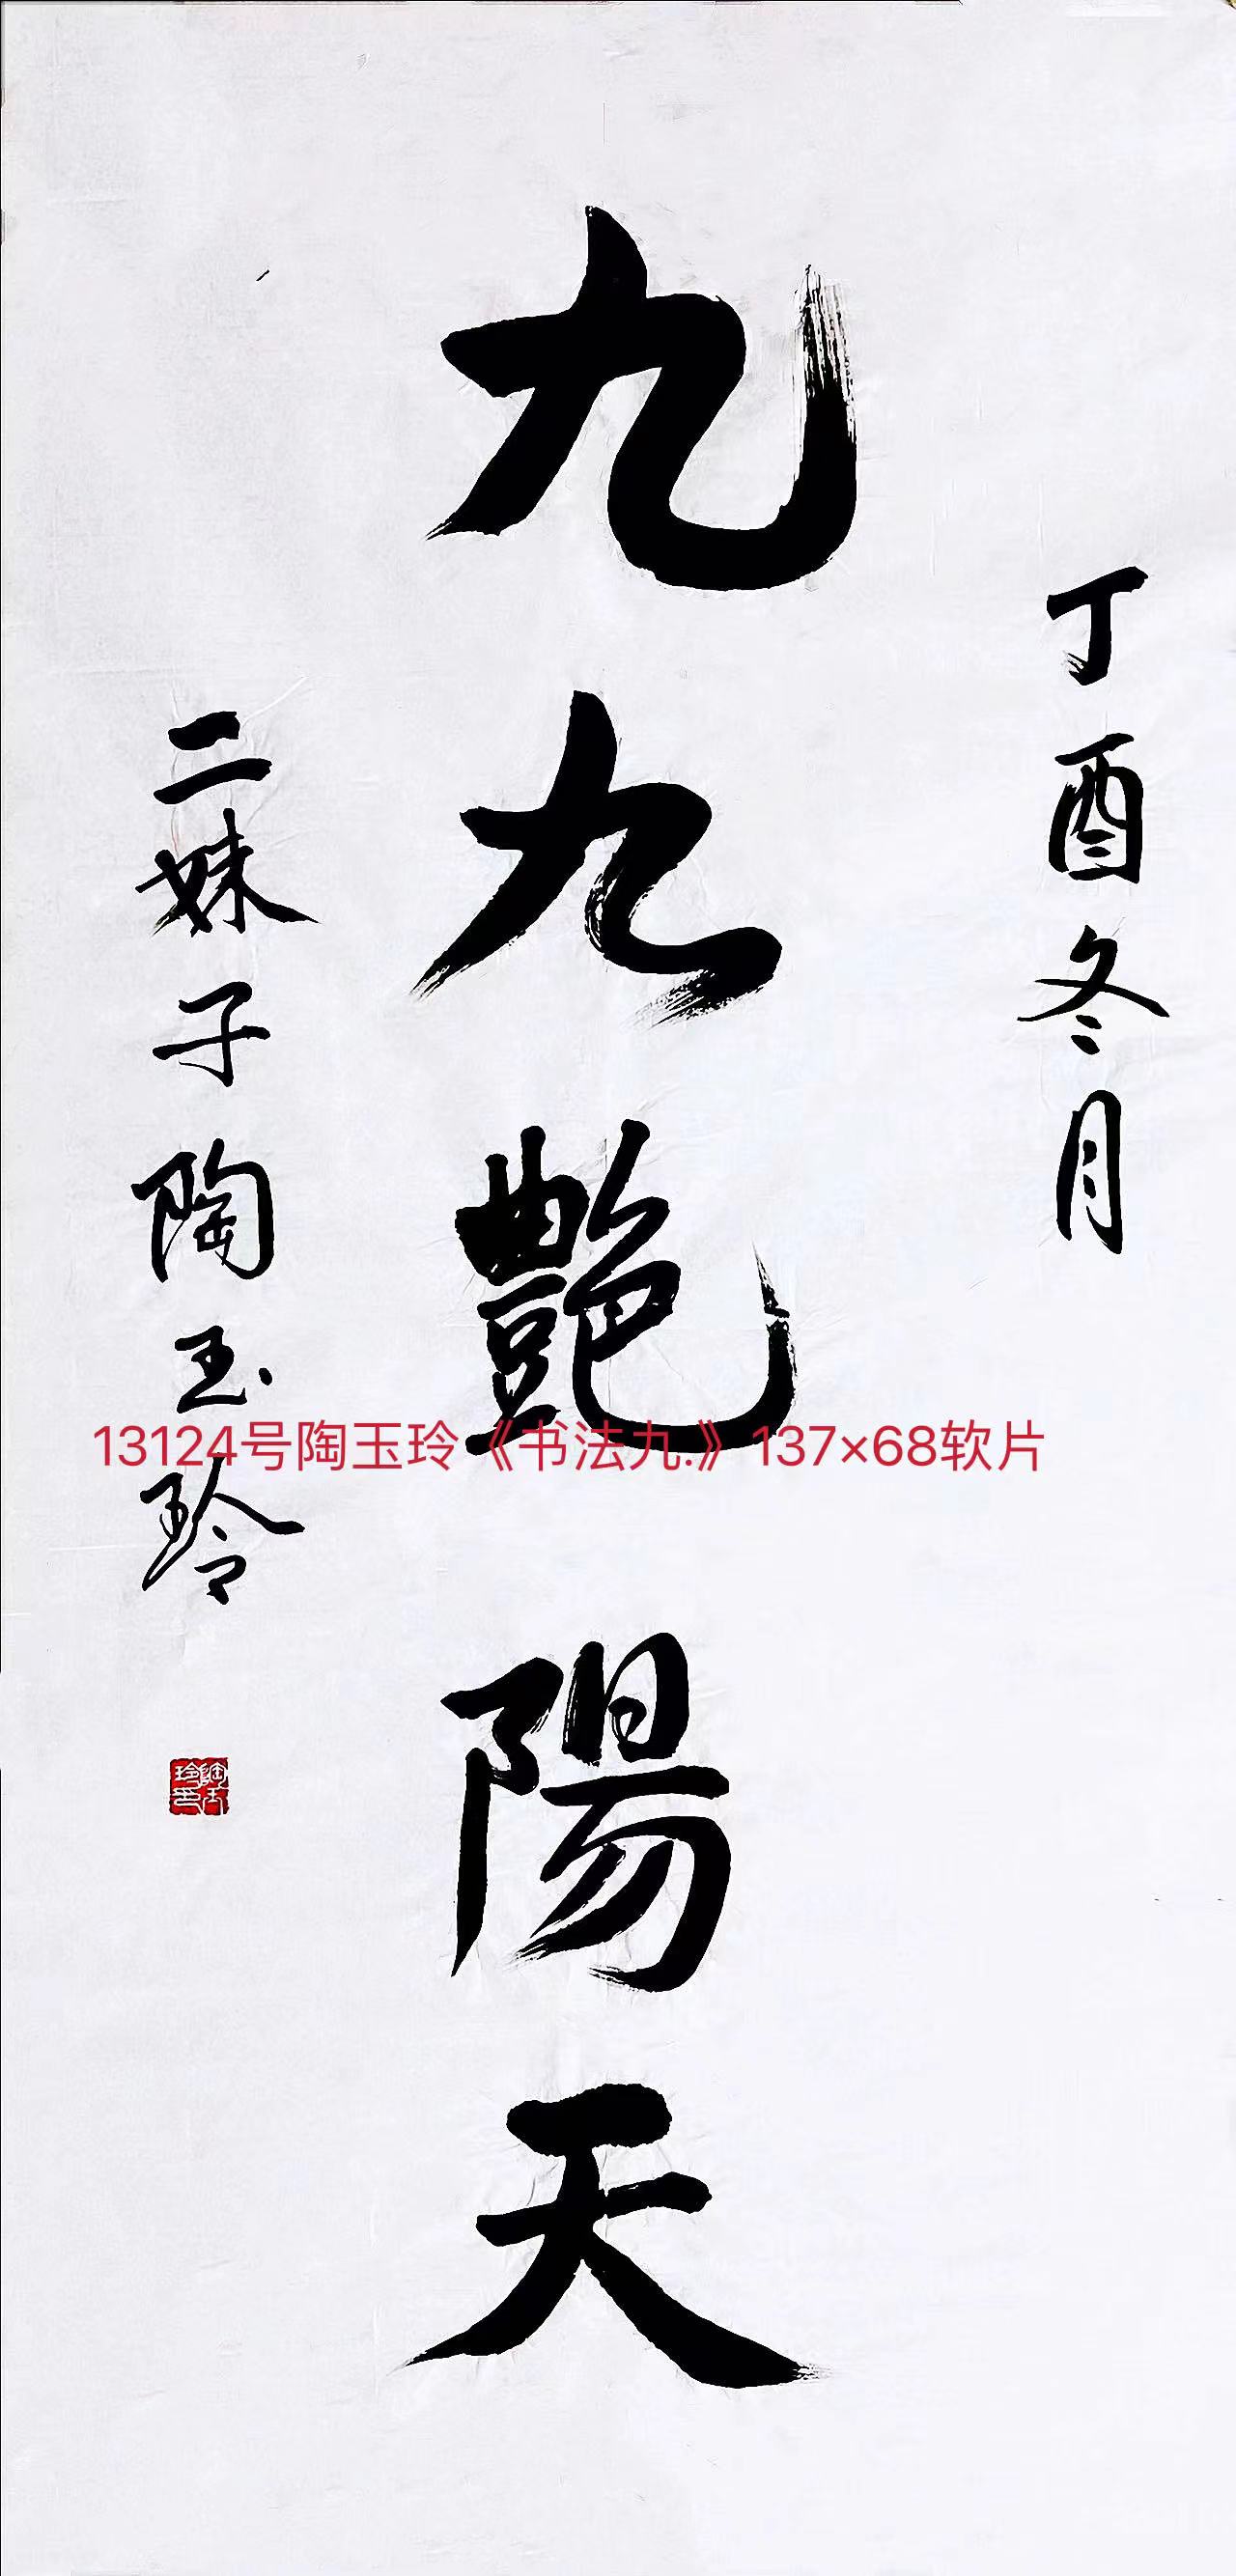 丁酉冬月
九九艷陽天
二妹子陶玉玲
13124号陶玉玲《书法九.》137×68软片
陶玉玲印